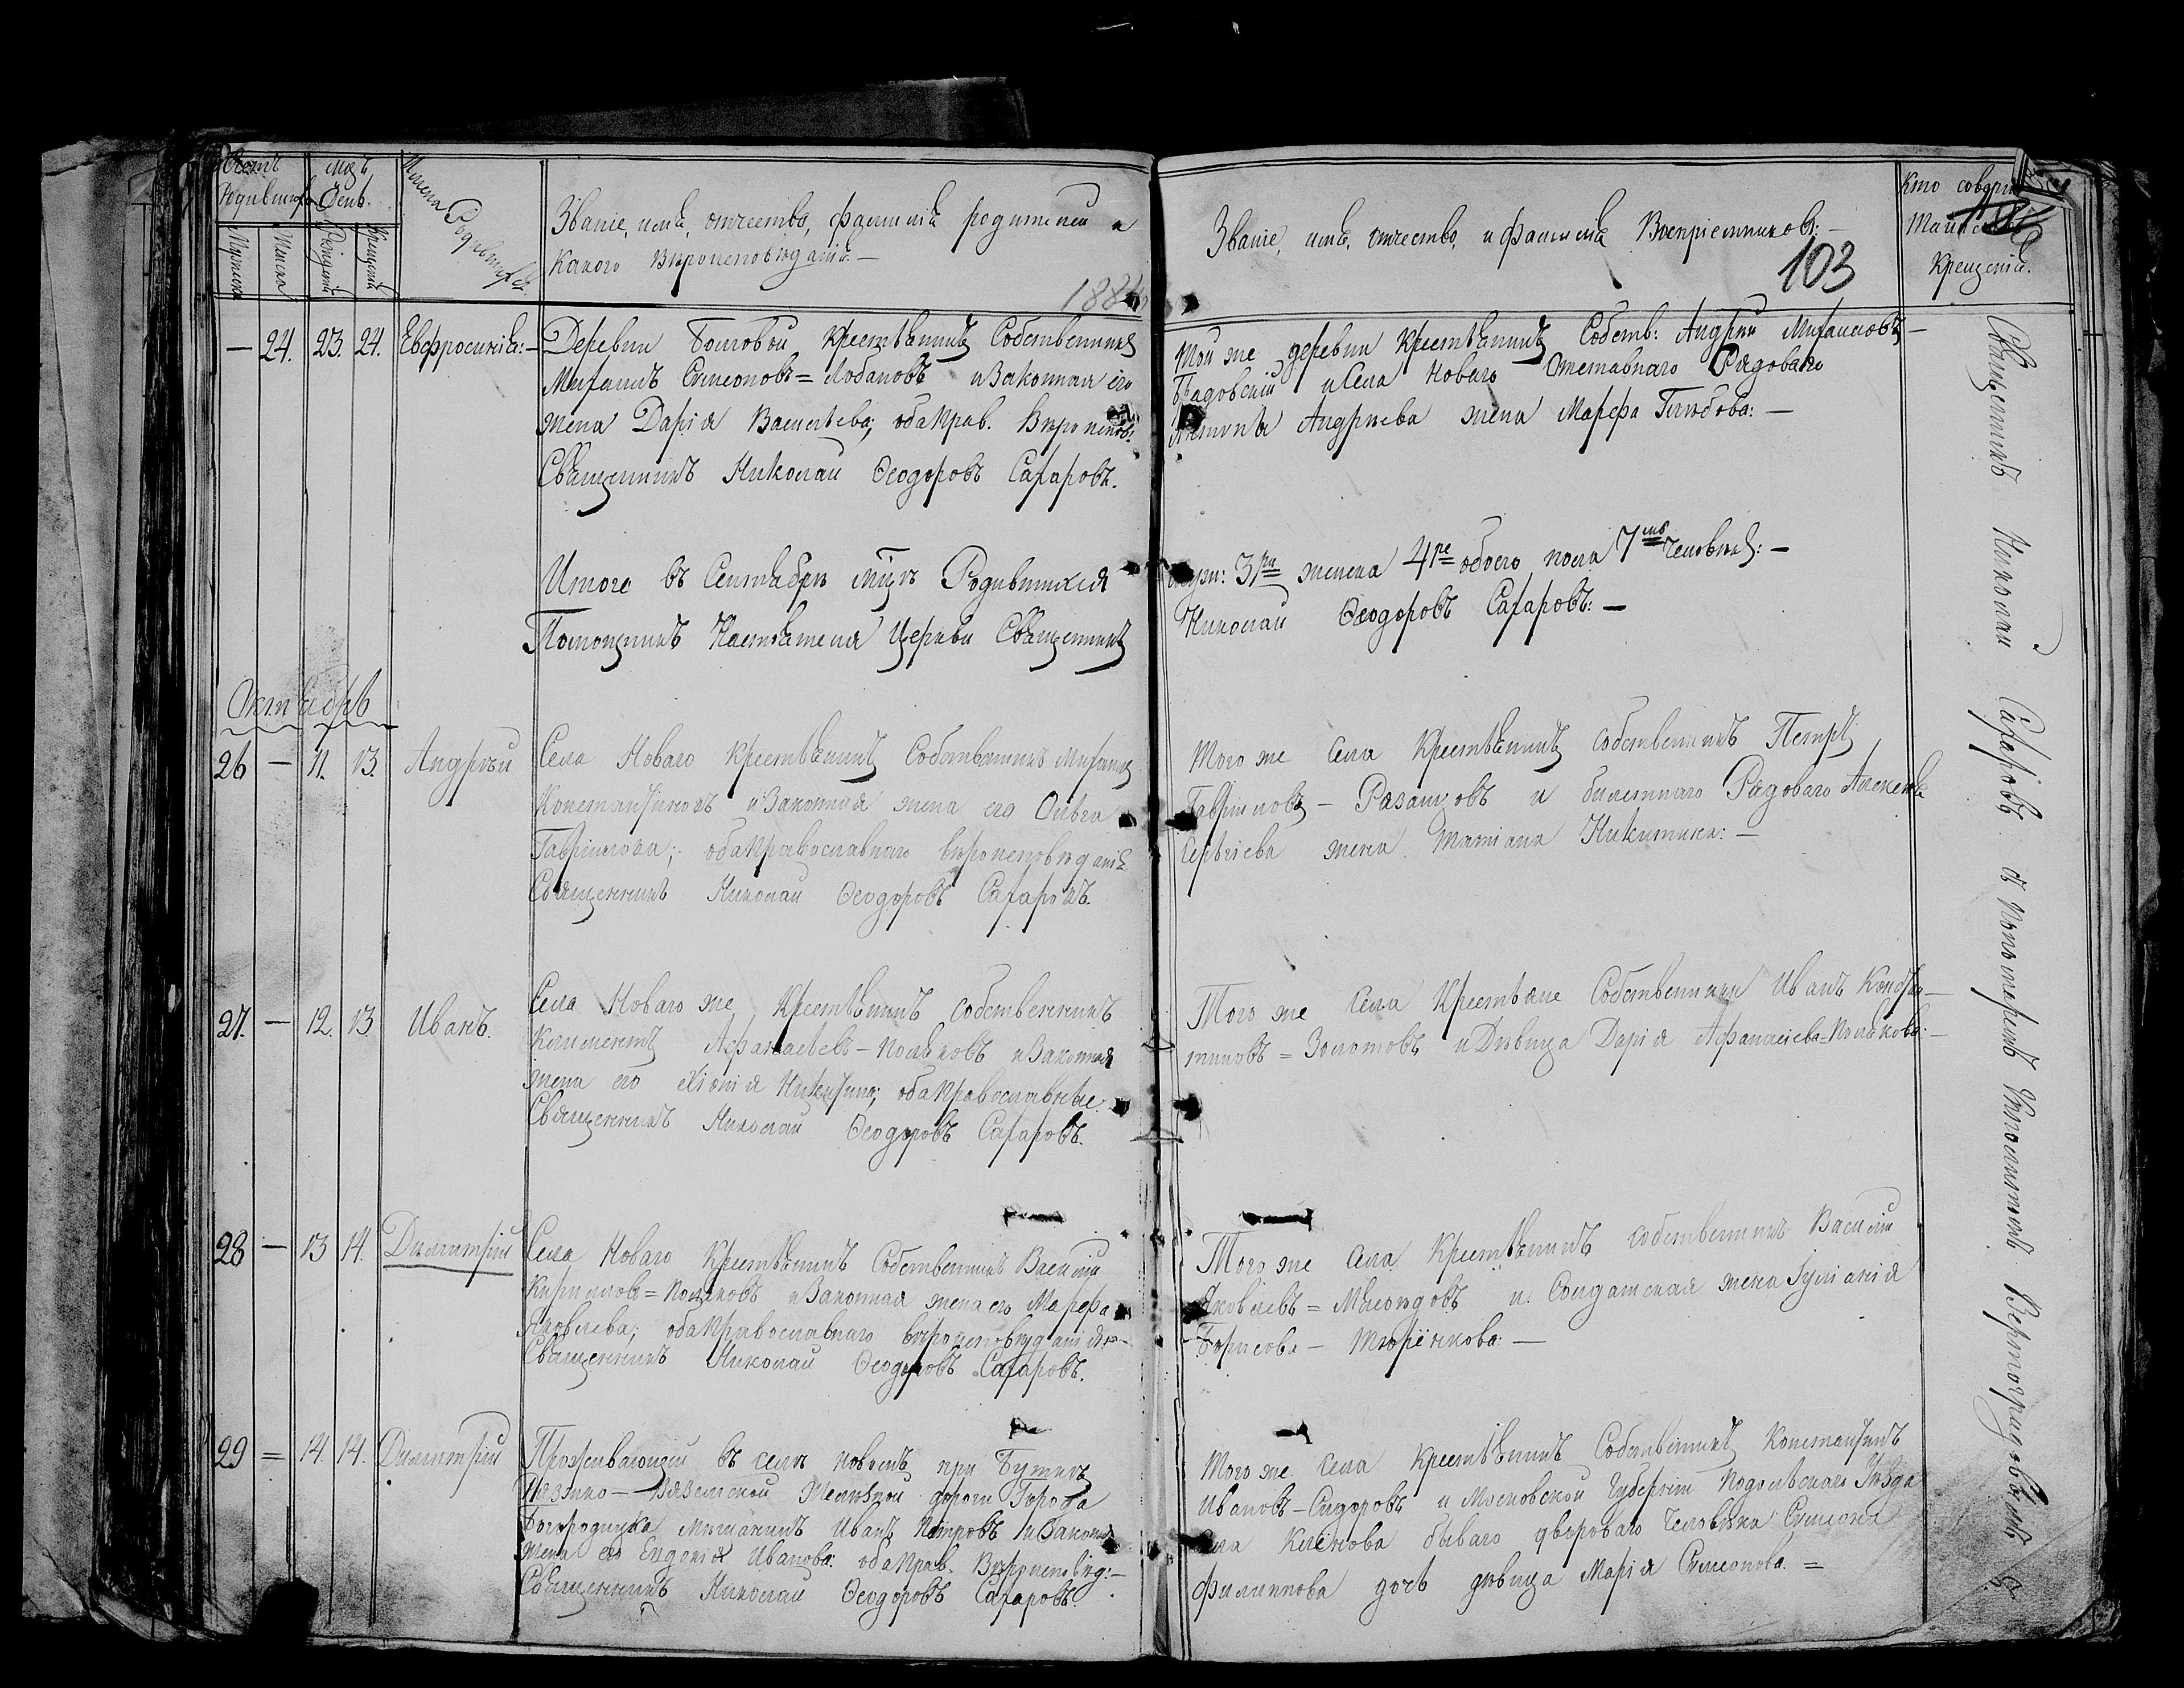 Счетъ Родившихся
Мѣс. День.
Имена Родившихся.
Званіе, имя, отчество, фамилія родителей и
какого вѣроисповѣданія. —
Мужеска
Женска
Рожденія
Крещенія
188
Званіе, имя, отчество, и фамилія Воспріемниковъ: —
103
Кто соверш
Таинство
Крещенія.
— 24. 23. 24. Евфросинія: —
Деревни Крестьянинъ Собственникъ
Михаилъ Симеоновъ = Лобановъ и Законная его
жена Дарія Васильева; оба Прав. Вѣроиспов:
Священникъ Николай Ѳеодоровъ Сахаровъ.
Той же деревни Крестьянинъ Собств: Андрей Михаиловъ —
и Села Новаго Отставнаго Рядоваго
Андреева жена Марфа Глѣбова: —
Итого въ Сентябрѣ мцѣ Родившихся
муж: 3ри женска 4ре обоего пола 7мь человѣкъ: —
Помощникъ Настоятеля Церкви Священникъ
Николай Ѳеодоровъ Сахаровъ: —
Октябрь
26 — 11. 13. Андрей
Села Новаго Крестьянинъ Собственникъ Михаилъ
Константиновъ и Законная жена его Ольга
Гавриилова; оба Православнаго вѣроисповѣданія
Священникъ Николай Ѳеодоровъ Сахаровъ.
Того же Села Крестьянинъ Собственникъ Петръ
Гаврииловъ — и билетнаго Рядоваго Алексѣя
Сергѣева жена Татіана Никитина: —
27. — 12. 13 Иванъ.
Села Новаго же Крестьянинъ Собственникъ
Климентъ Афанасьевъ — Поляковъ и Законная
жена его Хіонія Никитина; оба Православные.
Священникъ Николай Ѳеодоровъ Сахаровъ.
Того же Села Крестьяне Собственники Иванъ Констан—
тиновъ = Золотовъ и Дѣвица Дарія Афанасіева = Полякова: —
28 — 13 14. Димитрій
Села Новаго Крестьянинъ Собственникъ Василій
Кирилловъ = Поляковъ и Законная жена его Марфа
Яковлева; оба Православнаго вѣроисповѣданія
Священникъ Николай Ѳеодоровъ Сахаровъ.
Того же Села Крестьянинъ Собственникъ Василій
Яковлевъ = и Солдатская жена Іуліанія
Борисова — Тюрёнкова: —
29 = 14. 14. Димитрій
Проживающій въ селѣ Новомъ при Буткѣ
Ряжско — Вяземской Желѣзной дороги Города
Богородицка мѣщанинъ Иванъ Петровъ и Законная
жена его Евдокія Иванова: оба Прав. Вѣроисповѣд: —
Священникъ Николай Ѳеодоровъ Сахаровъ.
Того же Села Крестьянинъ Собственникъ Константинъ
Ивановъ — Сидоровъ и Московской Губерніи Подольскаго Уѣзда
Села Клёнова бываго двороваго человѣка Симеона
Филиппова дочь дѣвица Марія Симеонова. =
Священникъ Николай Сахаровъ съ Псаломщикомъ Вертоградовымъ